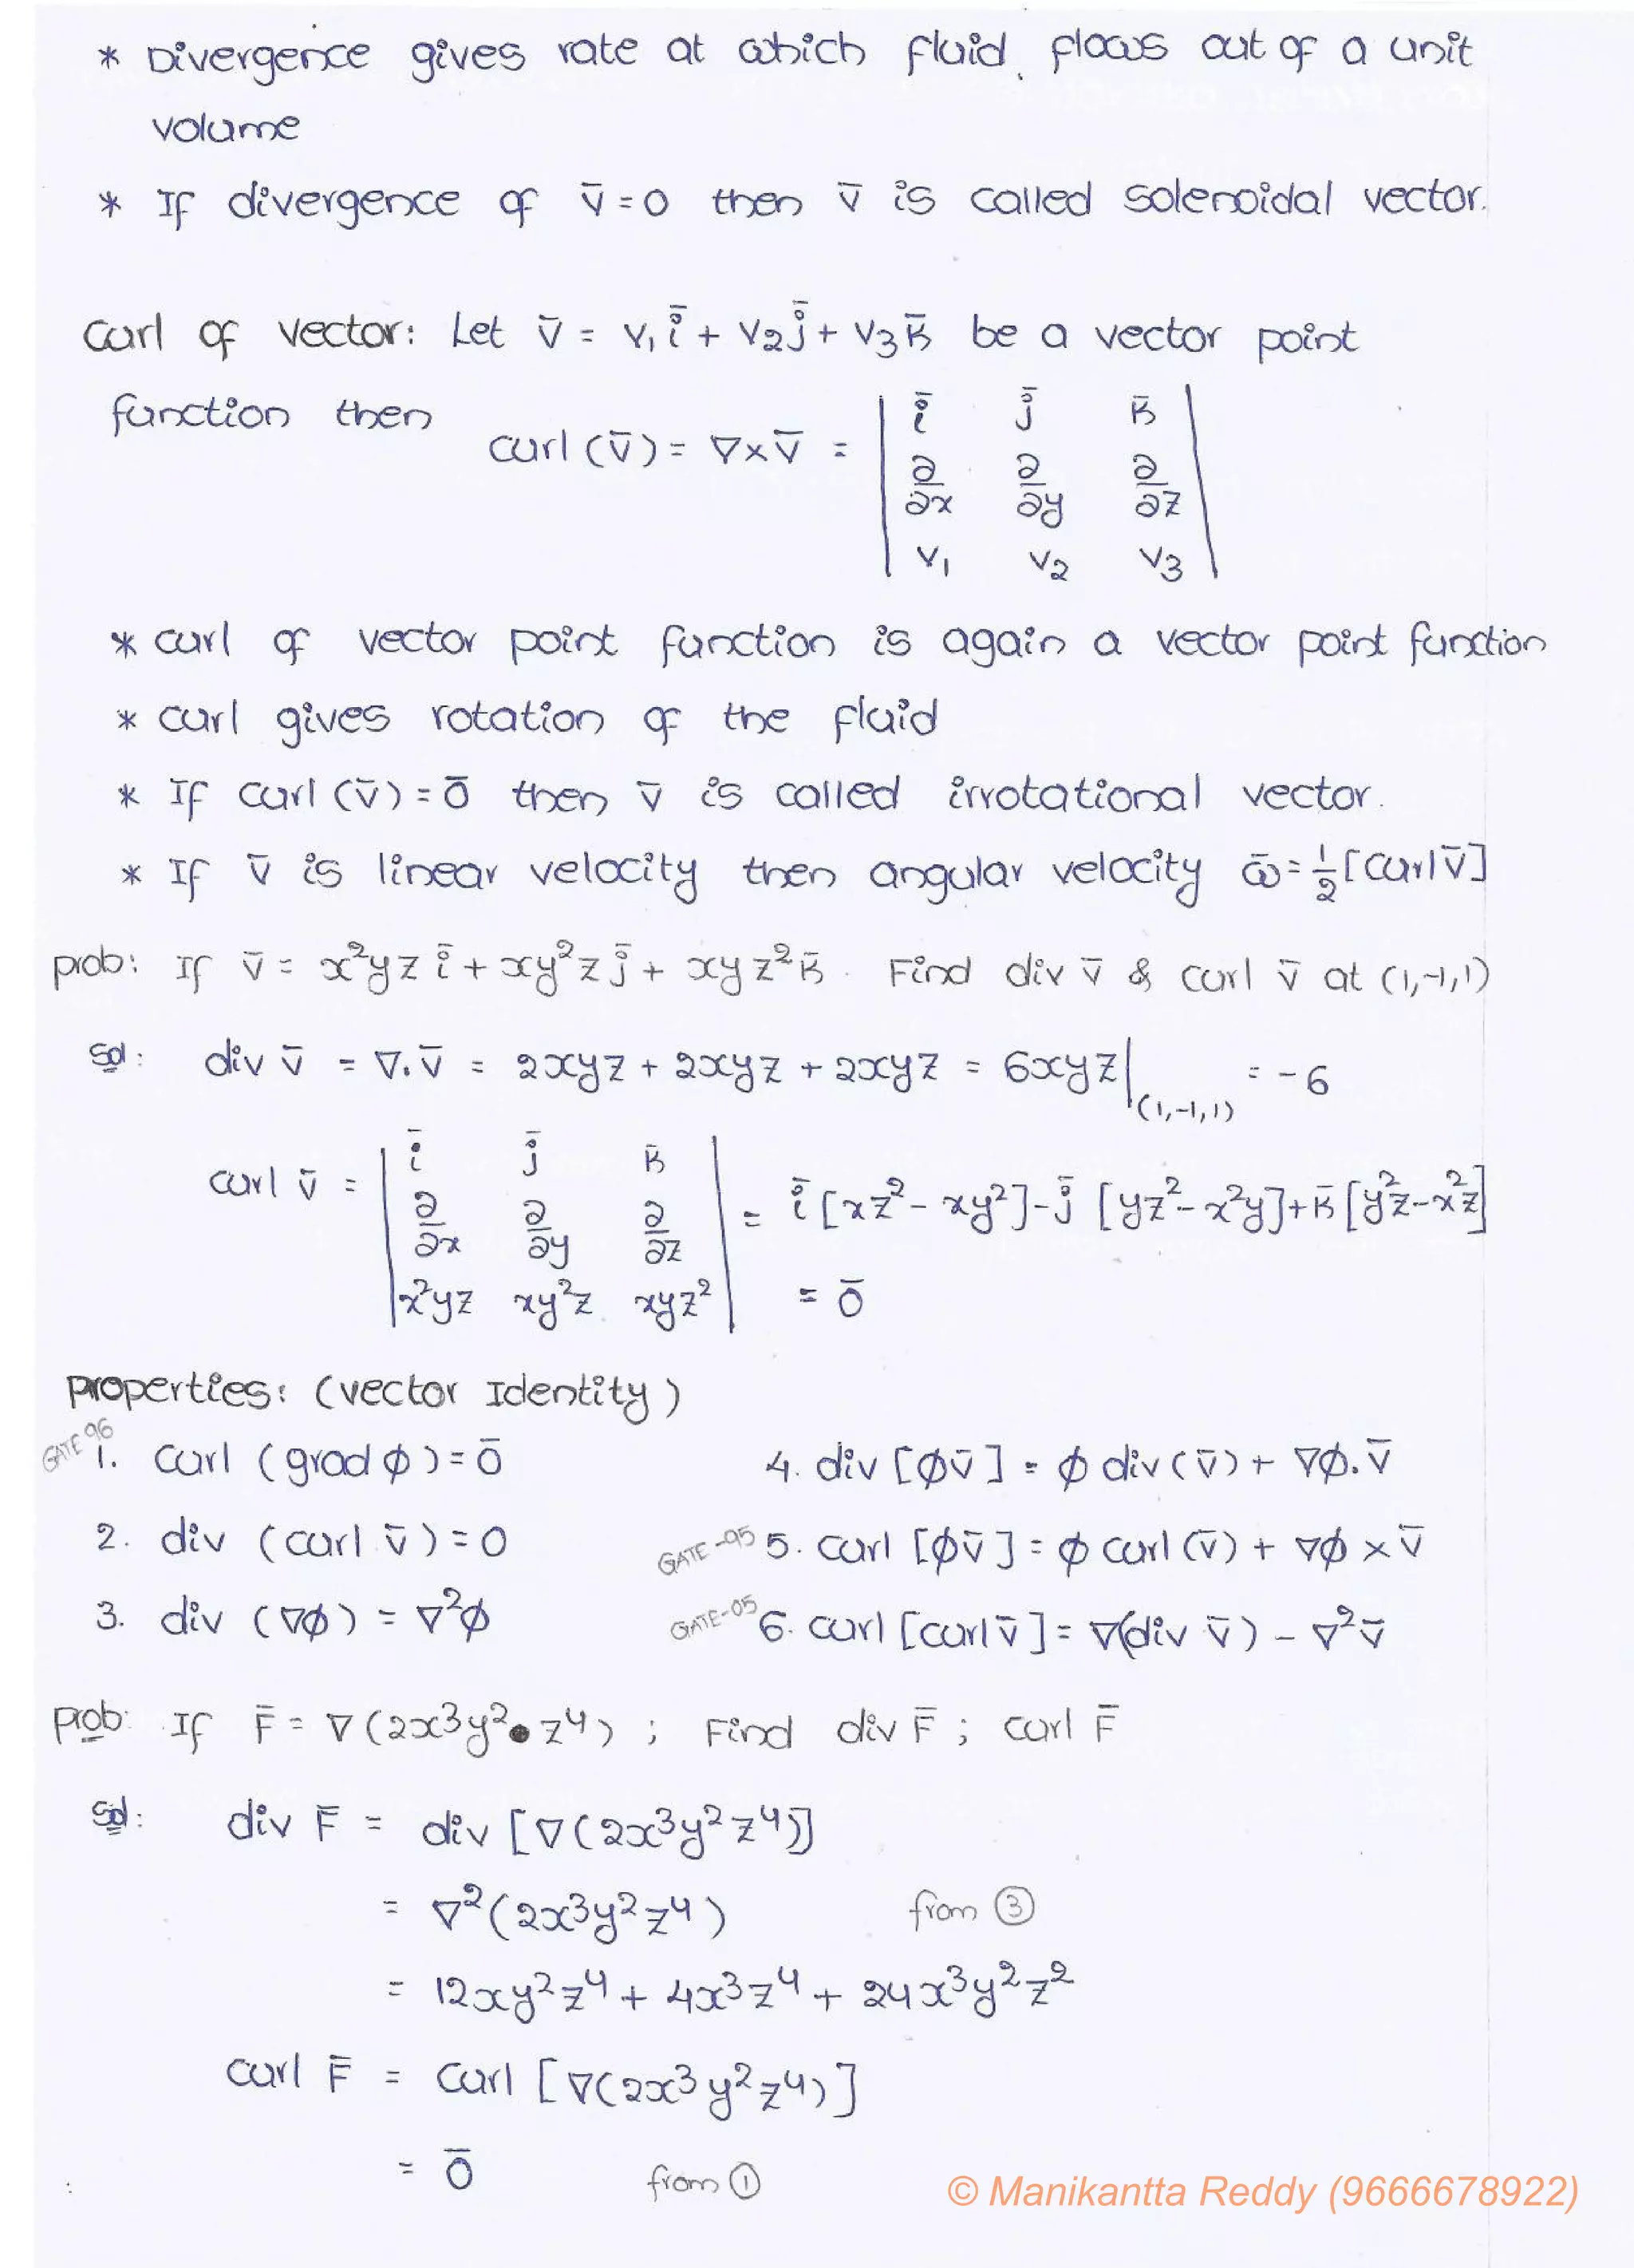 * Divergence gives rate at which fluid flows out of a unit
volume
* If divergence of v̄ = 0 then v̄ is called solenoidal vector.
curl of vector: Let v̄ = v₁ī + v₂j̄ + v₃k̄ be a vector point
function then
curl (v̄) = ∇×v̄ = | ī j̄ k̄ |
| ∂/∂x ∂/∂y ∂/∂z |
| v₁ v₂ v₃ |
* curl of vector point function is again a vector point function
* curl gives rotation of the fluid
* If curl (v̄) = 0̄ then v̄ is called irrotational vector.
* If v̄ is linear velocity then angular velocity ω̄ = 1/2 [curl v̄]
prob: If v̄ = x²yz ī + xy²z j̄ + xyz² k̄. Find div v̄ & curl v̄ at (1,-1,1)
Sol: div v̄ = ∇.v̄ = 2xyz + 2xyz + 2xyz = 6xyz|(1,-1,1) = -6
curl v̄ = | ī j̄ k̄ |
| ∂/∂x ∂/∂y ∂/∂z | = ī [xz² - xy²] - j̄ [yz² - x²y] + k̄ [y²z - x²z]
| x²yz xy²z xyz² | = 0̄
Properties: (vector Identity)
GATE 96 1. curl (grad φ) = 0̄
4. div [φv̄] = φ div (v̄) + ∇φ.v̄
2. div (curl v̄) = 0
GATE-95 5. curl [φv̄] = φ curl (v̄) + ∇φ × v̄
3. div (∇φ) = ∇²φ
GATE-05 6. curl [curl v̄] = ∇(div v̄) - ∇²v̄
Prob: If F̄ = ∇(2x³y² z⁴) ; Find div F̄ ; curl F̄
Sol: div F̄ = div [∇(2x³y²z⁴)]
= ∇²(2x³y²z⁴) from ③
= 12xy²z⁴ + 4x³z⁴ + 24x³y²z²
curl F̄ = curl [∇(2x³y²z⁴)]
= 0̄ from ①
© Manikantta Reddy (9666678922)